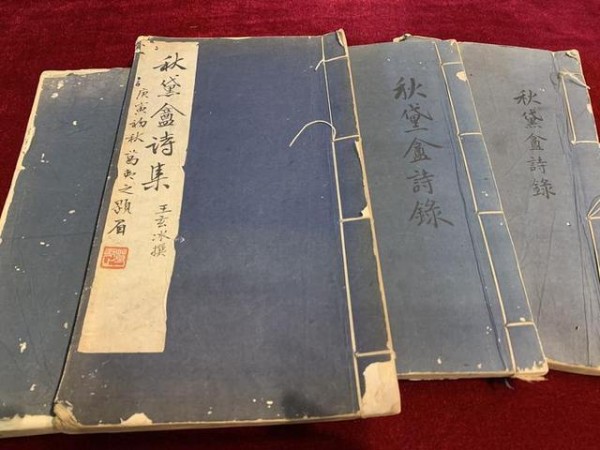 秋黛盦詩集
王玄冰撰
庚寅初秋葛夷之題眉
秋黛盦詩錄
秋黛盦詩錄